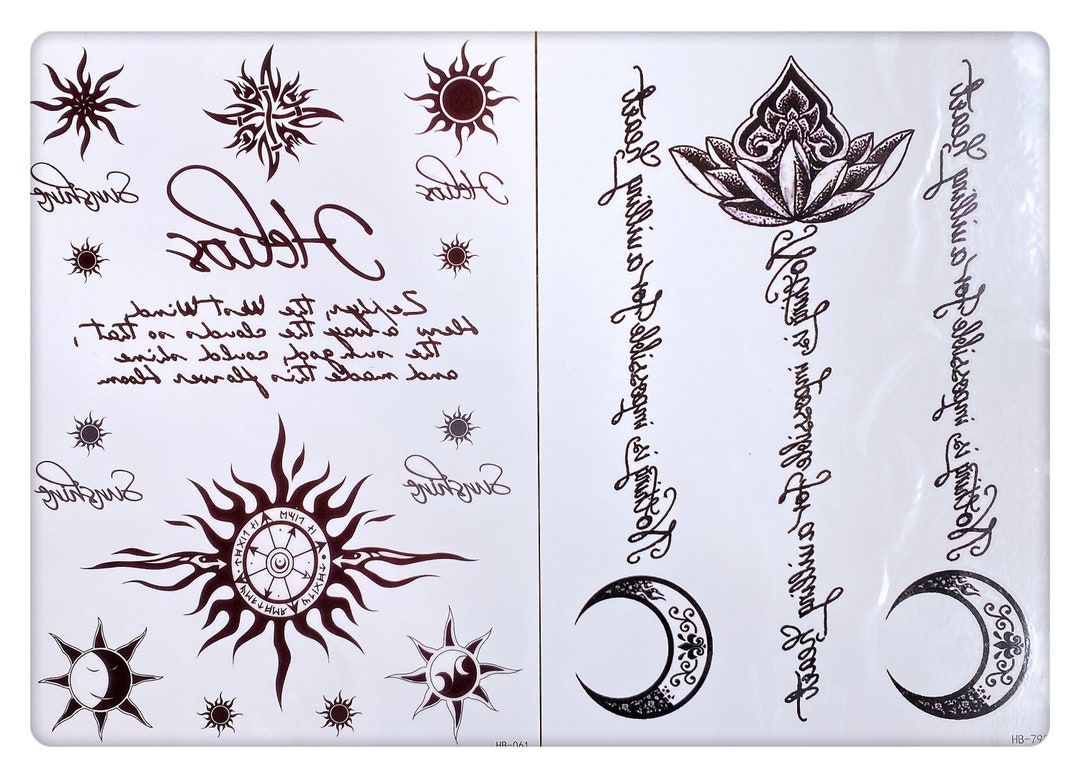 Sunshine
Helios
Helios
Zephyr, the West Wind,
blew away the clouds so that,
the sun god, could shine
and made this flower bloom
Sunshine
Sunshine
HB-061
Nothing is impossible for a willing heart
Nothing is impossible for a willing heart
Nothing is impossible for a willing heart